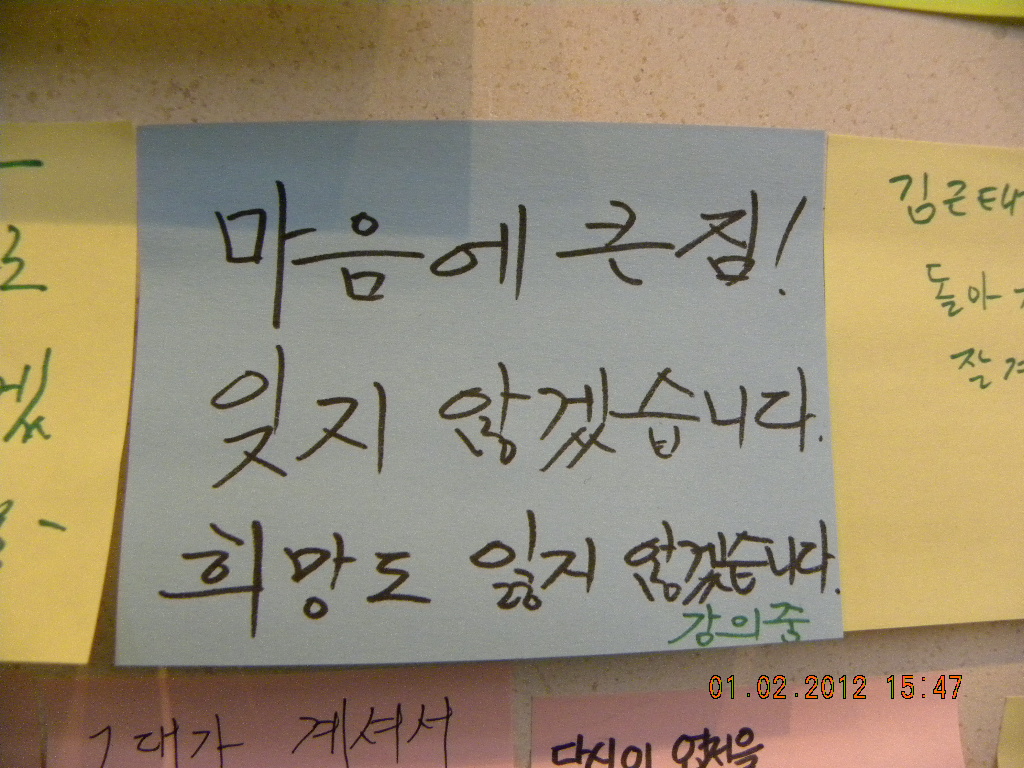 마음에 큰 짐!
잊지 않겠습니다.
희망도 잃지 않겠습니다.
강의중
김근태
돌아
잘
그대가 계셔서
다시이
01.02.2012 15:47